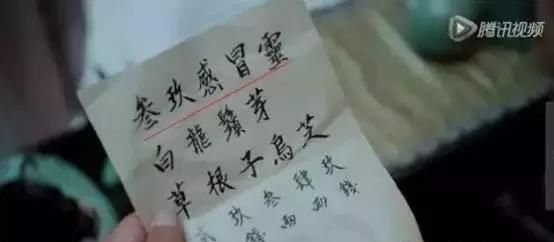 腾讯视频
叁玖感冒靈
白龍鬚芽
草根子烏芝
玖叁肆玖
錢両両錢